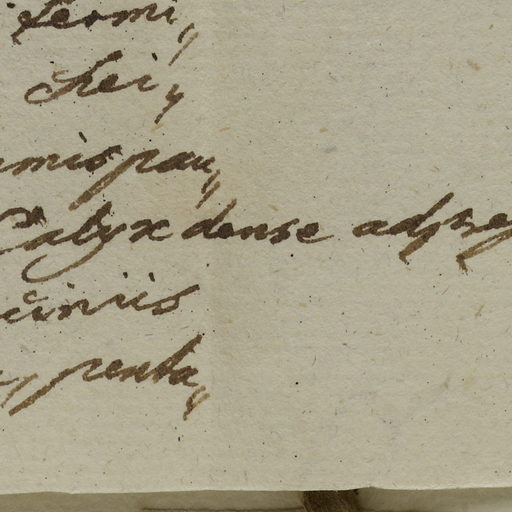 termi„
thei„
mis pau„
Calyx dense adpre
ciniis
, penta„